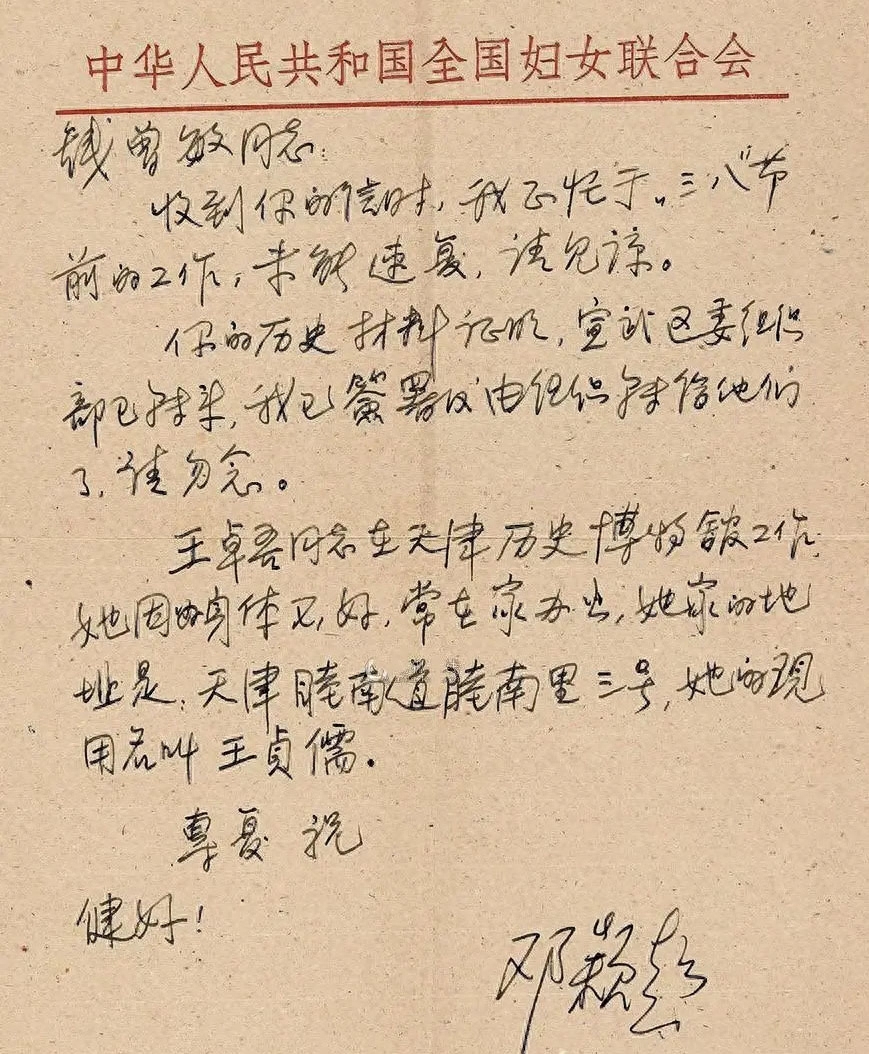 中华人民共和国全国妇女联合会
钱曾敏同志：
收到你的信时，我正忙于“三八”节
前的工作，未能速复，请见谅。
你的历史材料证明，宣武区委组织
部已转来，我已簽署仪由组织转给他们
了，请勿念。
王卓吾同志在天津历史博物舘工作
她因的身体不好，常在家办公，她家的地
址是：天津睦南道睦南里三号，她的现
用名叫王貞儒。
専复 祝
健好！
邓颖超